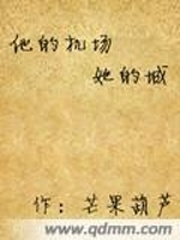 他的机场
她的城
作：芒果葫芦
www.qdmm.com